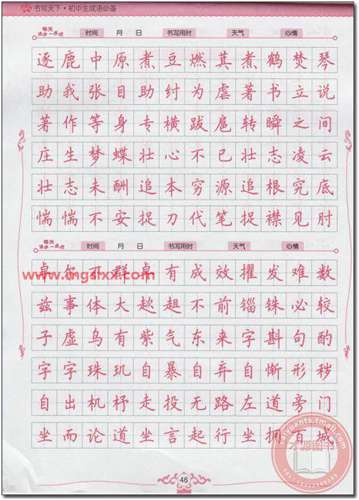 书写天下·初中生成语必备
每天进步一点点 时间 月 日 书写用时 天气 心情
逐鹿中原煮豆燃萁煮鹤焚琴
助我张目助纣为虐著书立说
著作等身专横跋扈转瞬之间
庄生梦蝶壮心不已壮志凌云
壮志未酬追本穷源追根究底
惴惴不安捉刀代笔捉襟见肘
每天进步一点点 时间 月 日 书写用时 天气 心情
卓尔不群卓有成效擢发难数
兹事体大趑趄不前锱铢必较
子虚乌有紫气东来字斟句酌
字字珠玑自暴自弃自惭形秽
自出机杼走投无路左道旁门
坐而论道坐言起行坐拥百城
46